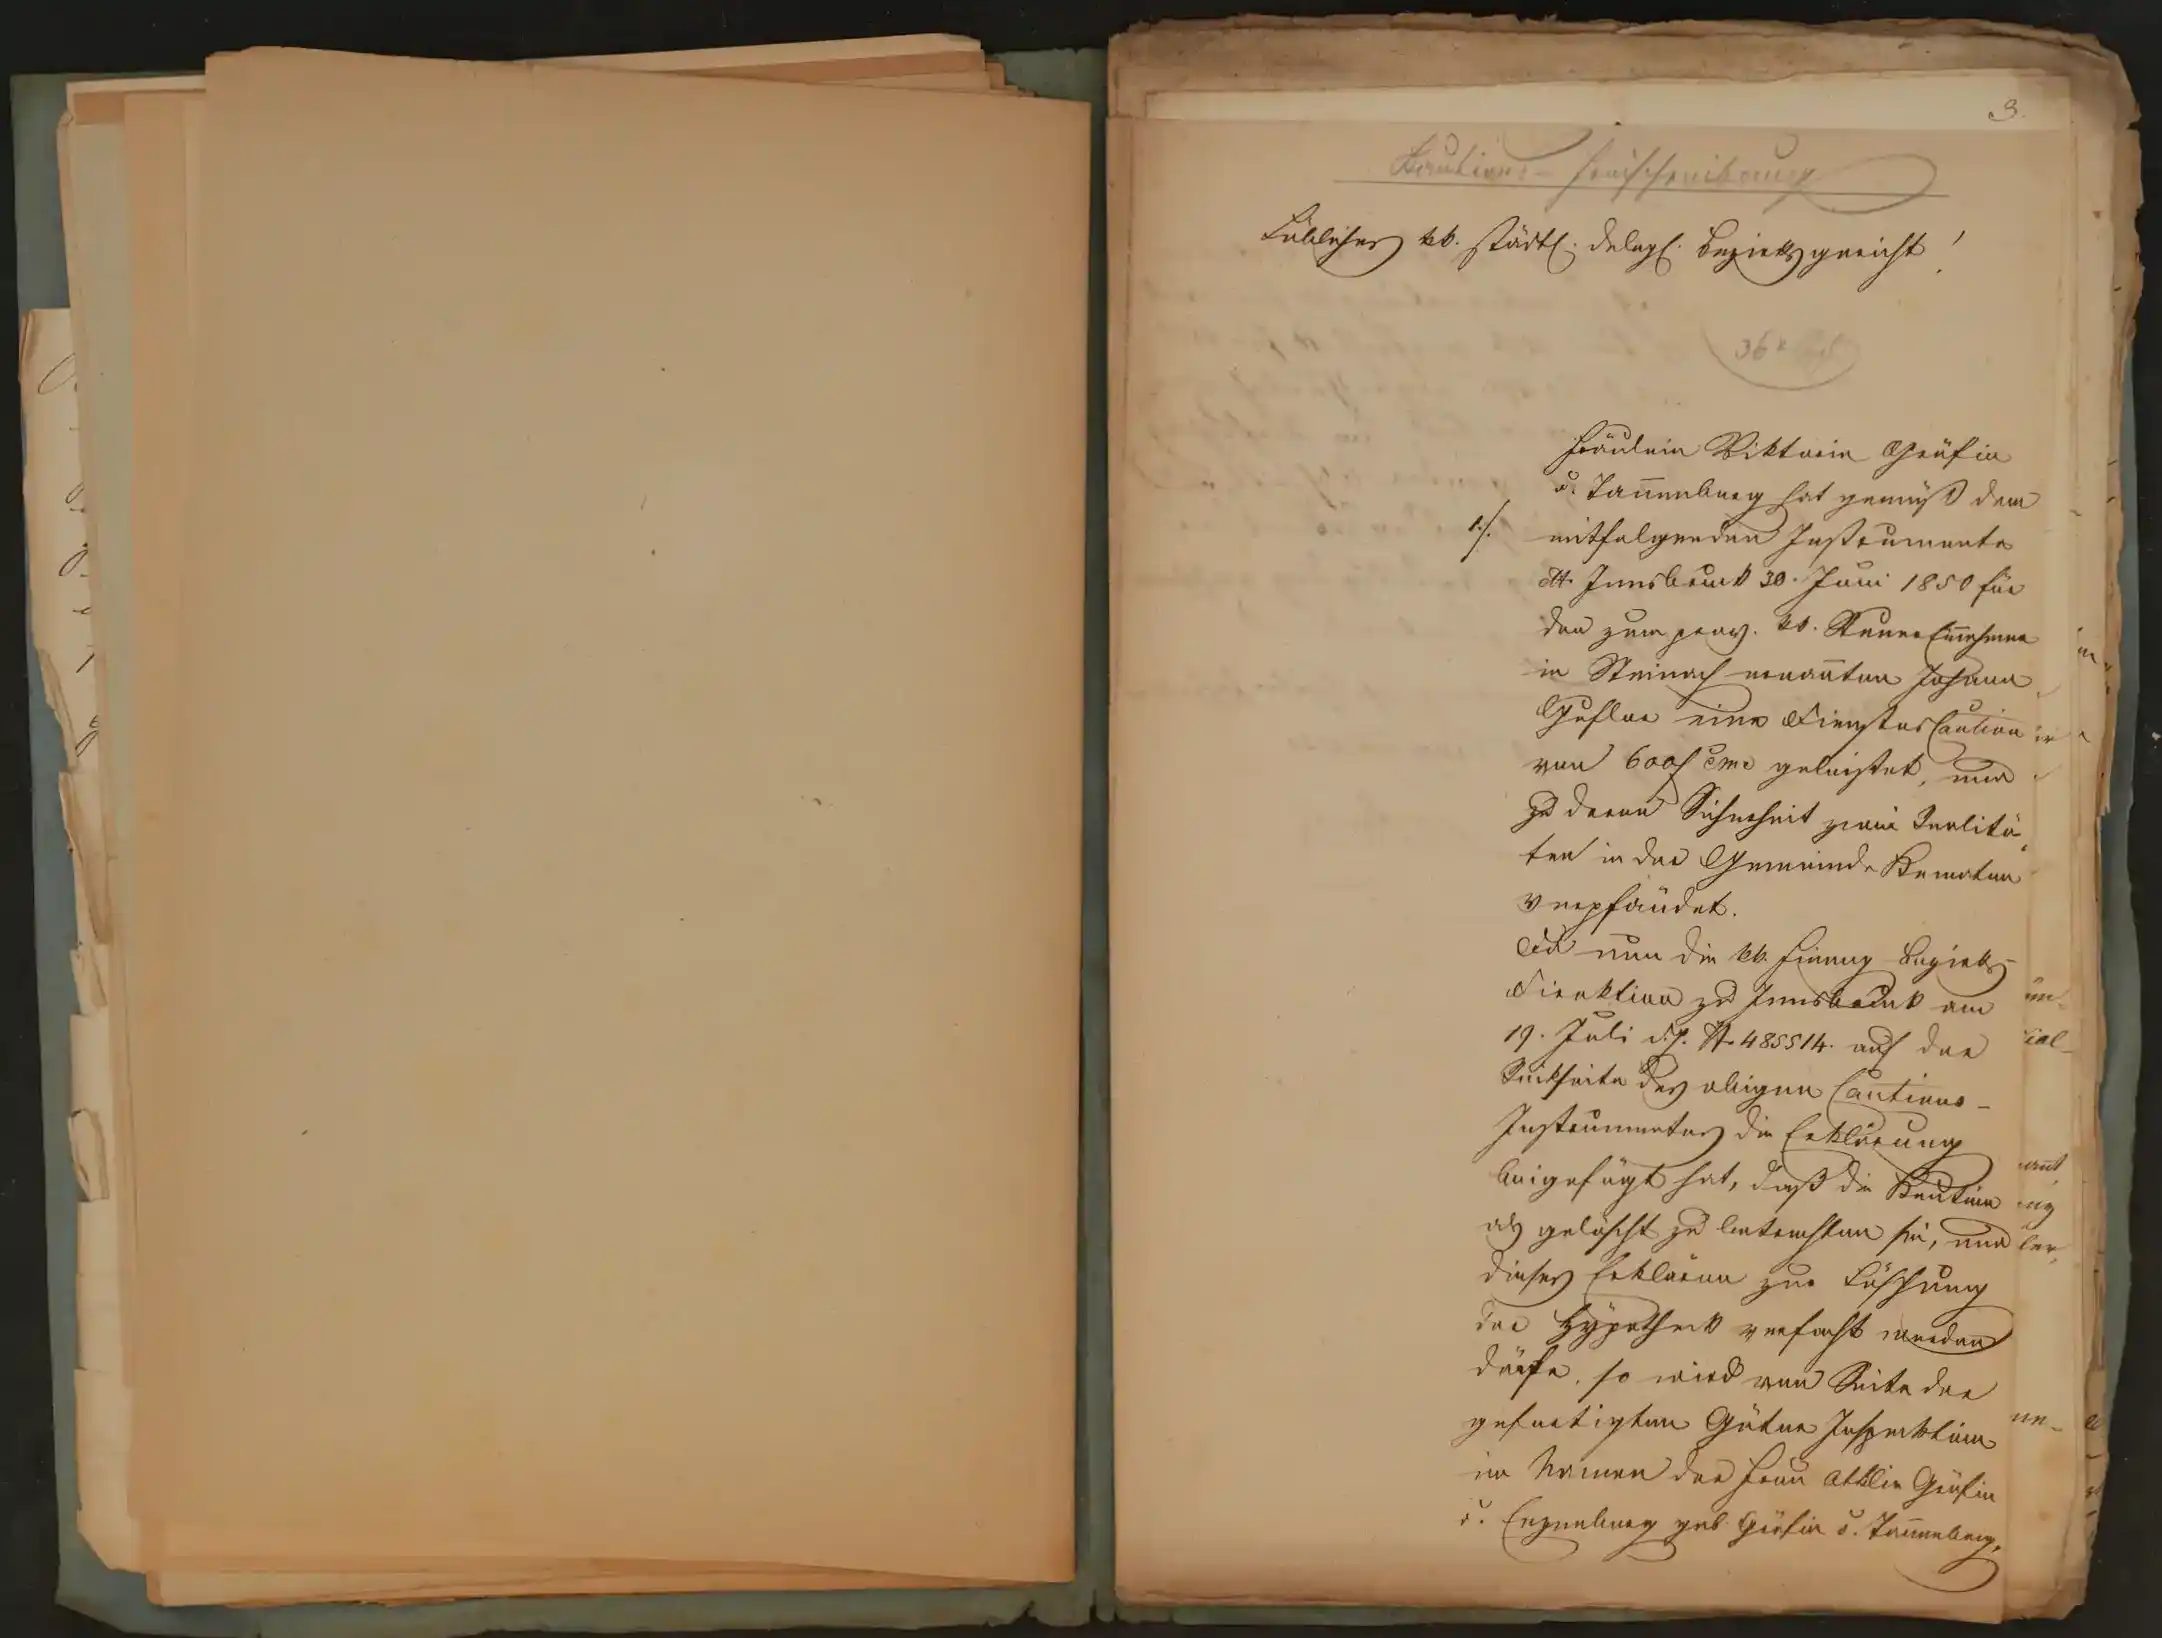 3.
Kautions-Freischreibung
Löbliches kk. städtl. delegl. Bezirksgericht!
36 x
Fräulein Viktoria Gräfin
v. Tan̄enberg hat gemäß dem
1./. mitfolgenden Instrumente
dtt. Innsbruck 30. Juni 1850 für
den zum prov. kk. Steuer Ein̄ehmer
in Steinach ernan̄ten Johann
eine Dienstes Caution
von 600 f CMze geleistet, und
zu deren Sicherheit zwei Realitä-
ten in der Gemeinde Kematen
verpfändet.
Da nun die kk. Finanz-Bezirks-
Direktion zu Innsbruck am
19. Juli d. J. N. 485514. auf der
Rückseite des obigen Cautions-
Instrumentes die Erklärung
beigefügt hat, daß die Kaution
als gelöscht zu betrachten sei, und
dieses Erklären zur Löschung
der Hypothek verfacht werden
dürfe, so wird von Seite der
gefertigten Güter Inspektion
im Namen der Frau Ottilie Gräfin
v. Enzenberg geb. Gräfin v. Tan̄enberg,